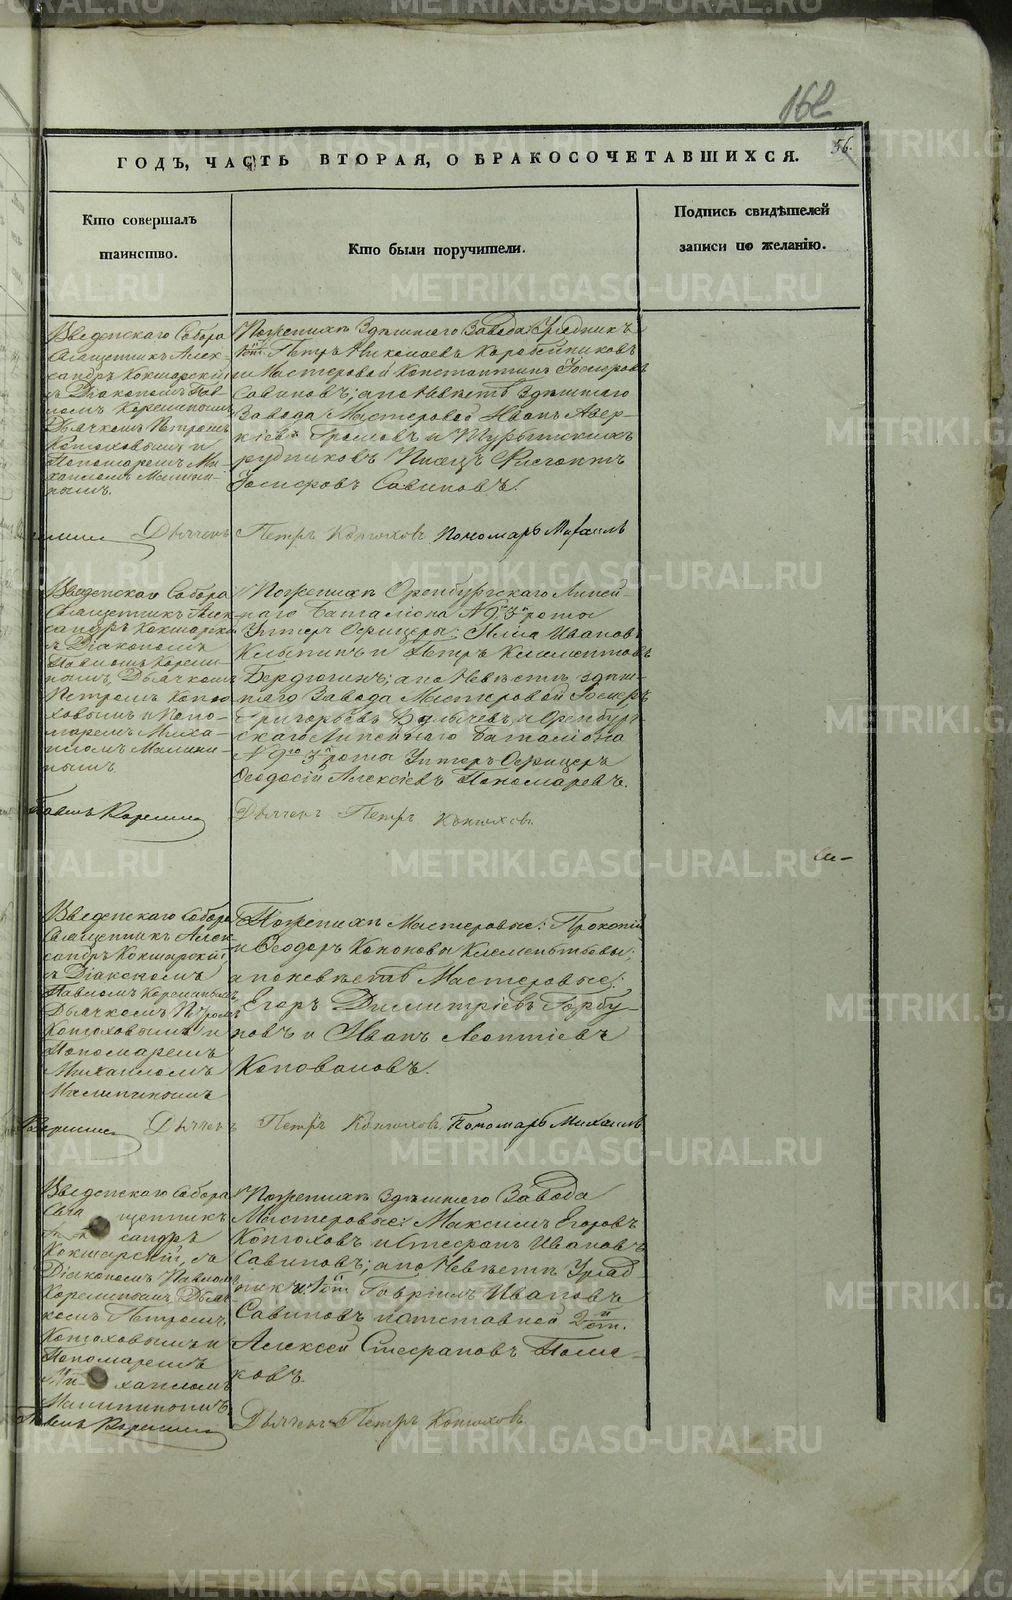 162
56.
ГОДЪ, ЧАСТЬ ВТОРАЯ, О БРАКОСОЧЕТАВШИХСЯ.
Кто совершалъ
таинство.
Кто были поручители.
Подпись свидѣтелей
записи по желанію.
Введенскаго Собора
Священникъ Алек-
сандръ Кокшарскій
съ Діакономъ Пав-
ломъ
Дьячкомъ Петромъ
Конюховымъ и
Пономаремъ Ми-
хаиломъ Малини-
нымъ.
По женихѣ Здѣшняго Завода Урядникъ
1й ст. Петръ Николаевъ Коробейниковъ
и Мастеровой Константинъ Іосифовъ
Савиновъ; а по Невѣстѣ Здѣшняго
Завода Мастеровой Иванъ Авер-
кіевъ Громовъ и
рудниковъ
Іосифовъ Савиновъ.
Дьячекъ Петръ Конюховъ Пономарь Михаилъ
Введенскаго Собора
Священникъ Алек-
сандръ Кокшарскій
съ Діакономъ
Павломъ
Дьячкомъ
Петромъ Коню-
ховымъ и Поно-
маремъ Миха-
иломъ Малини-
нымъ.
По женихѣ Оренбургскаго Линей-
наго Баталіона № 9го 3й роты
Унтеръ Офицеры: Илья Ивановъ
и Петръ Климентовъ
Бердюгинъ; а по Невѣстѣ здѣш-
няго Завода Мастеровой
Григорьевъ и Оренбург-
скаго Линейнаго Баталіона
№ 9го 3й роты Унтеръ Офицеръ
Ѳеодосій Алексіевъ Пономаревъ.
Павелъ
Дьячекъ Петръ Конюховъ
Введенскаго Собора
Священникъ Алек-
сандръ Кокшарскій
съ Діакономъ
Павломъ
Дьячкомъ Петромъ
Конюховымъ и
Пономаремъ
Михаиломъ
Малининымъ
По женихѣ Мастеровые: Прокопій
и Ѳеодоръ Кононовы Климентьевы;
а по невѣстѣ Мастеровые:
Егоръ Димитріевъ Горбу-
новъ и Иванъ Леонтіевъ
Коноваловъ.
Дьячекъ Петръ Конюховъ Пономарь Михаилъ
Введенскаго Собора
Священникъ
Александръ
Кокшарскій, съ
Діакономъ Павломъ
Дьяч-
комъ Петромъ
Конюховымъ и
Пономаремъ
Михаиломъ
Малининымъ.
По женихѣ здѣшняго Завода
Мастеровые: Максимъ Егоровъ
Конюховъ и Стефанъ Ивановъ
Савиновъ; а по Невѣстѣ Уряд-
никъ 1й ст. Гавріилъ Ивановъ
Савиновъ и отставной 2й ст.
Алексей Стефановъ
ковъ.
Павелъ
Дьячекъ Петръ Конюховъ
METRIKI.GASO-URAL.RU